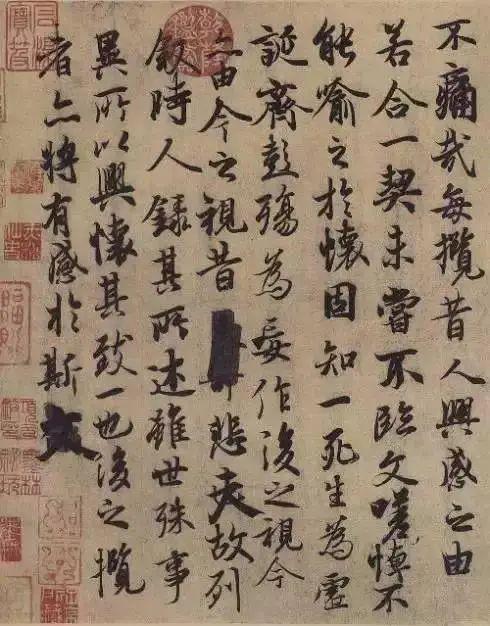 不痛哉每攬昔人興感之由
若合一契未嘗不臨文嗟悼不
能喻之於懷固知一死生為虛
誕齊彭殤為妄作後之視今
亦由今之視昔悲夫故列
叙時人錄其所述雖世殊事
異所以興懷其致一也後之攬
者亦將有感於斯文